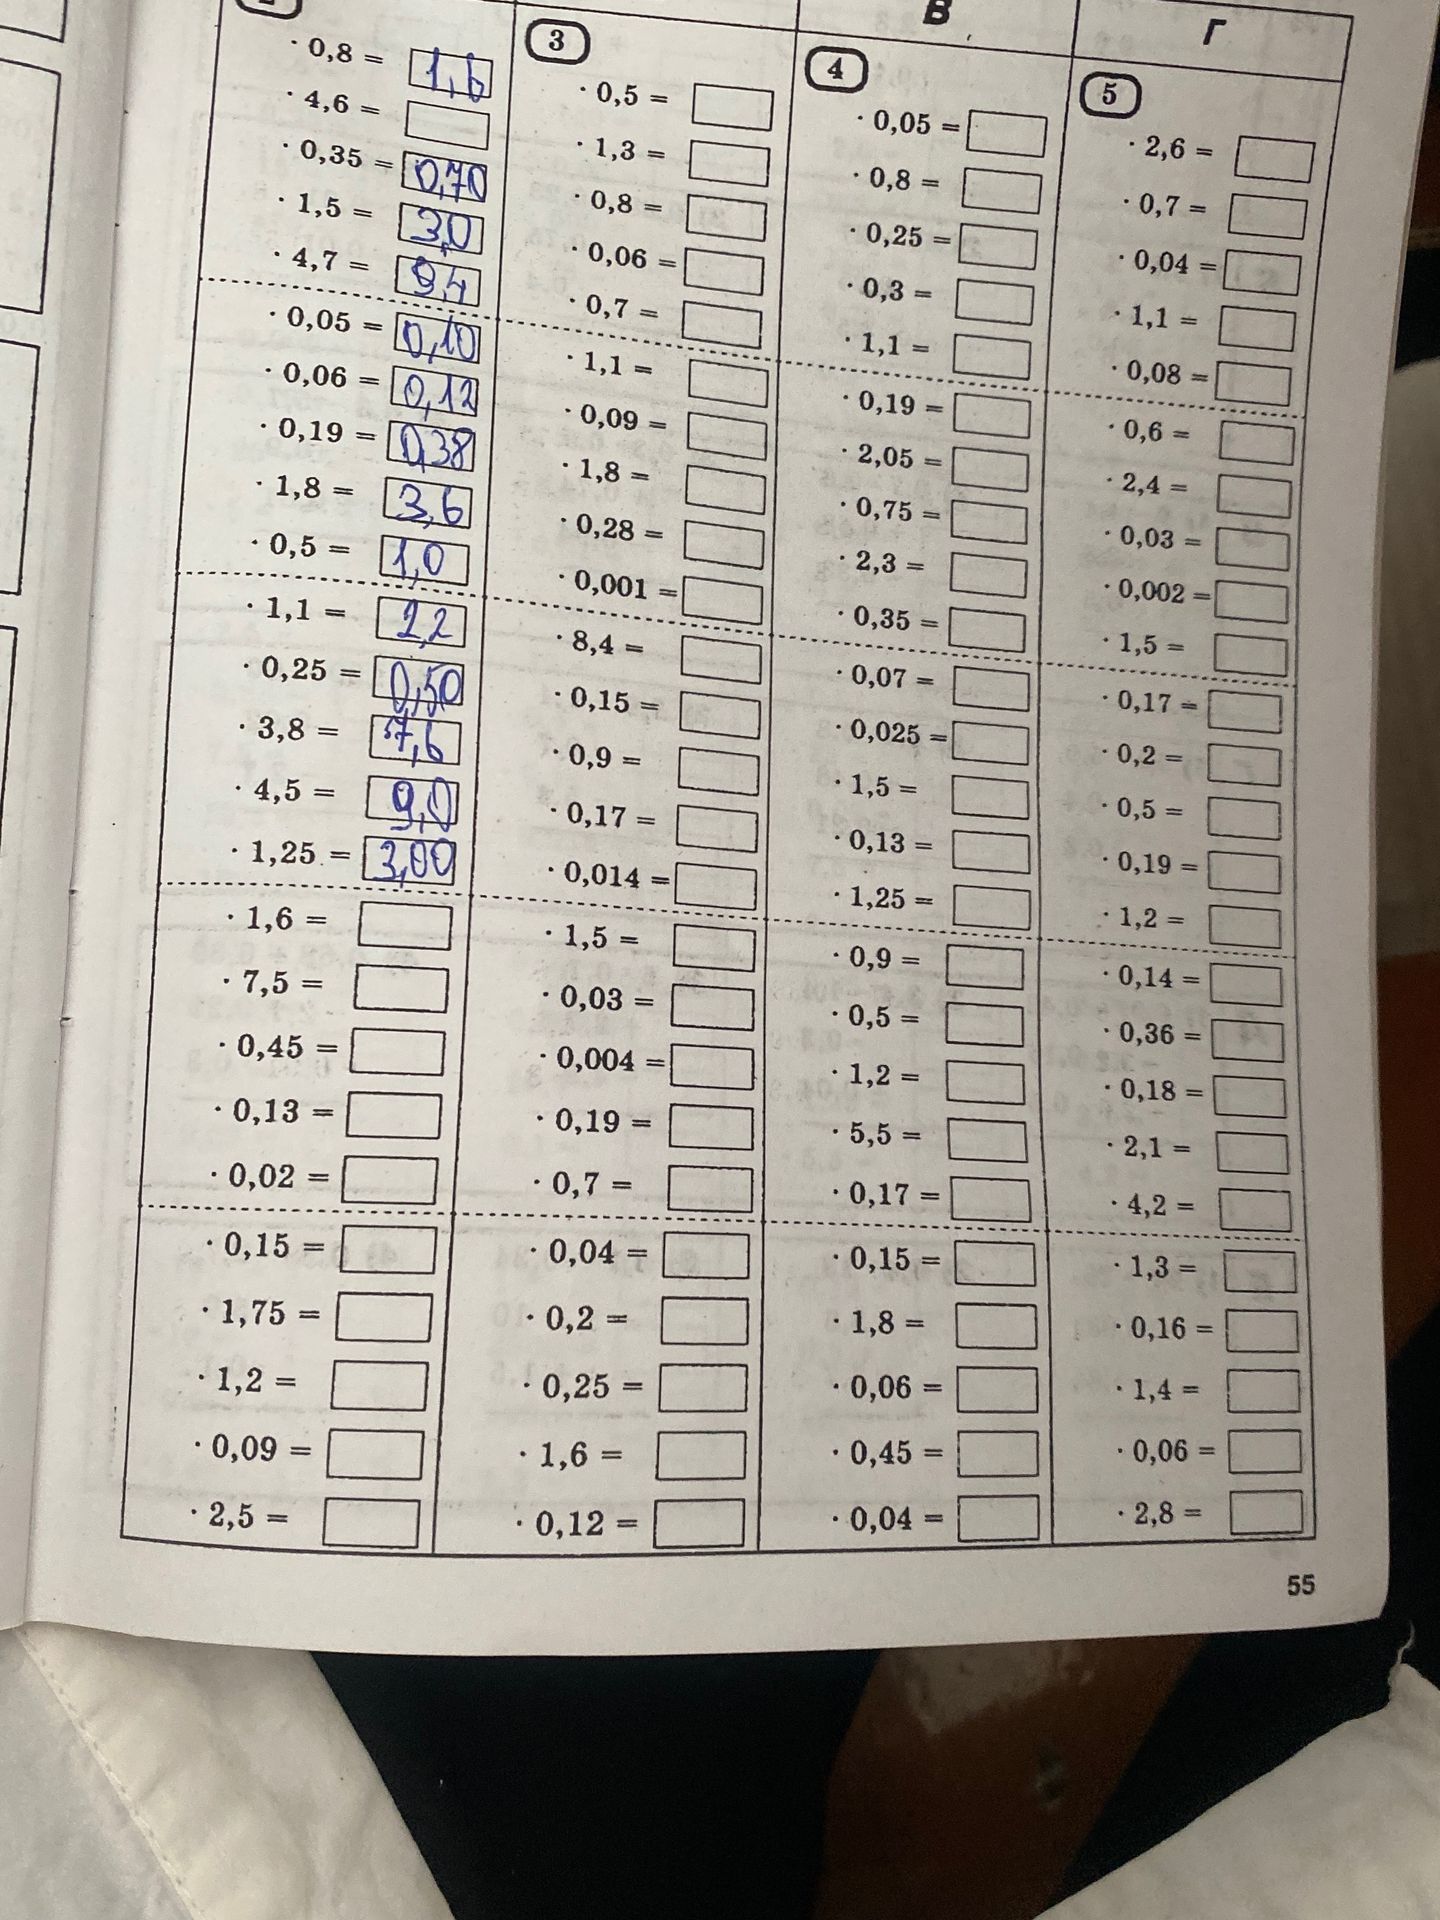 2
· 0,8 = 1,6
· 4,6 =
· 0,35 = 0,70
· 1,5 = 3,0
· 4,7 = 9,4
· 0,05 = 0,10
· 0,06 = 0,12
· 0,19 = 0,38
· 1,8 = 3,6
· 0,5 = 1,0
· 1,1 = 2,2
· 0,25 = 0,50
· 3,8 = 7,6
· 4,5 = 9,0
· 1,25 = 3,00
· 1,6 =
· 7,5 =
· 0,45 =
· 0,13 =
· 0,02 =
· 0,15 =
· 1,75 =
· 1,2 =
· 0,09 =
· 2,5 =
3
· 0,5 =
· 1,3 =
· 0,8 =
· 0,06 =
· 0,7 =
· 1,1 =
· 0,09 =
· 1,8 =
· 0,28 =
· 0,001 =
· 8,4 =
· 0,15 =
· 0,9 =
· 0,17 =
· 0,014 =
· 1,5 =
· 0,03 =
· 0,004 =
· 0,19 =
· 0,7 =
· 0,04 =
· 0,2 =
· 0,25 =
· 1,6 =
· 0,12 =
В
4
· 0,05 =
· 0,8 =
· 0,25 =
· 0,3 =
· 1,1 =
· 0,19 =
· 2,05 =
· 0,75 =
· 2,3 =
· 0,35 =
· 0,07 =
· 0,025 =
· 1,5 =
· 0,13 =
· 1,25 =
· 0,9 =
· 0,5 =
· 1,2 =
· 5,5 =
· 0,17 =
· 0,15 =
· 1,8 =
· 0,06 =
· 0,45 =
· 0,04 =
Г
5
· 2,6 =
· 0,7 =
· 0,04 =
· 1,1 =
· 0,08 =
· 0,6 =
· 2,4 =
· 0,03 =
· 0,002 =
· 1,5 =
· 0,17 =
· 0,2 =
· 0,5 =
· 0,19 =
· 1,2 =
· 0,14 =
· 0,36 =
· 0,18 =
· 2,1 =
· 4,2 =
· 1,3 =
· 0,16 =
· 1,4 =
· 0,06 =
· 2,8 =
55